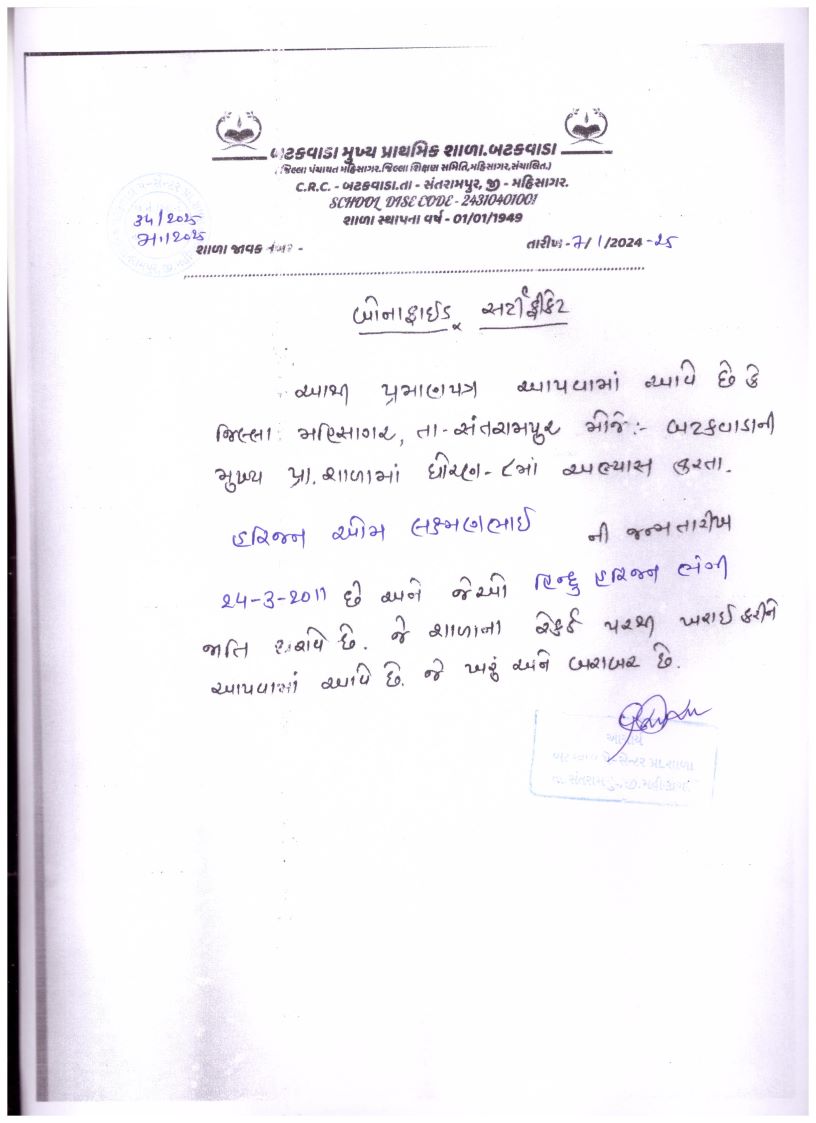 બટકવાડા મુખ્ય પ્રાથમિક શાળા.બટકવાડા
(જિલ્લા પંચાયત મહિસાગર.જિલ્લા શિક્ષણ સમિતિ,મહિસાગર,સંચાલિત.)
C.R.C. - બટકવાડા.તા - સંતરામપુર, જી - મહિસાગર.
SCHOOL DISE CODE - 24310401001
શાળા સ્થાપના વર્ષ - 01/01/1949
34/2025
મ।/2025
શાળા જાવક નંબર - તારીખ -7/1/2024-25
બોનાફાઈડ સર્ટીફીકેટ
આથી પ્રમાણપત્ર આપવામાં આવે છે કે
જિલ્લા મહિસાગર, તા-સંતરામપુર મોજે:- બટકવાડાની
મુખ્ય પ્રા. શાળામાં ધોરણ-૮માં અભ્યાસ કરતા.
હરિજન ઓમ લક્ષ્મણભાઈ ની જન્મ તારીખ
24-3-2011 છે અને જેઓ હિન્દુ હરિજન ભંગી
જાતિ ધરાવે છે. જે શાળાના રેકર્ડ પરથી ખરાઈ કરીને
આપવામાં આવે છે. જે ખરું અને બરાબર છે.
આચાર્ય
પે.સેન્ટર પ્રા.શાળા